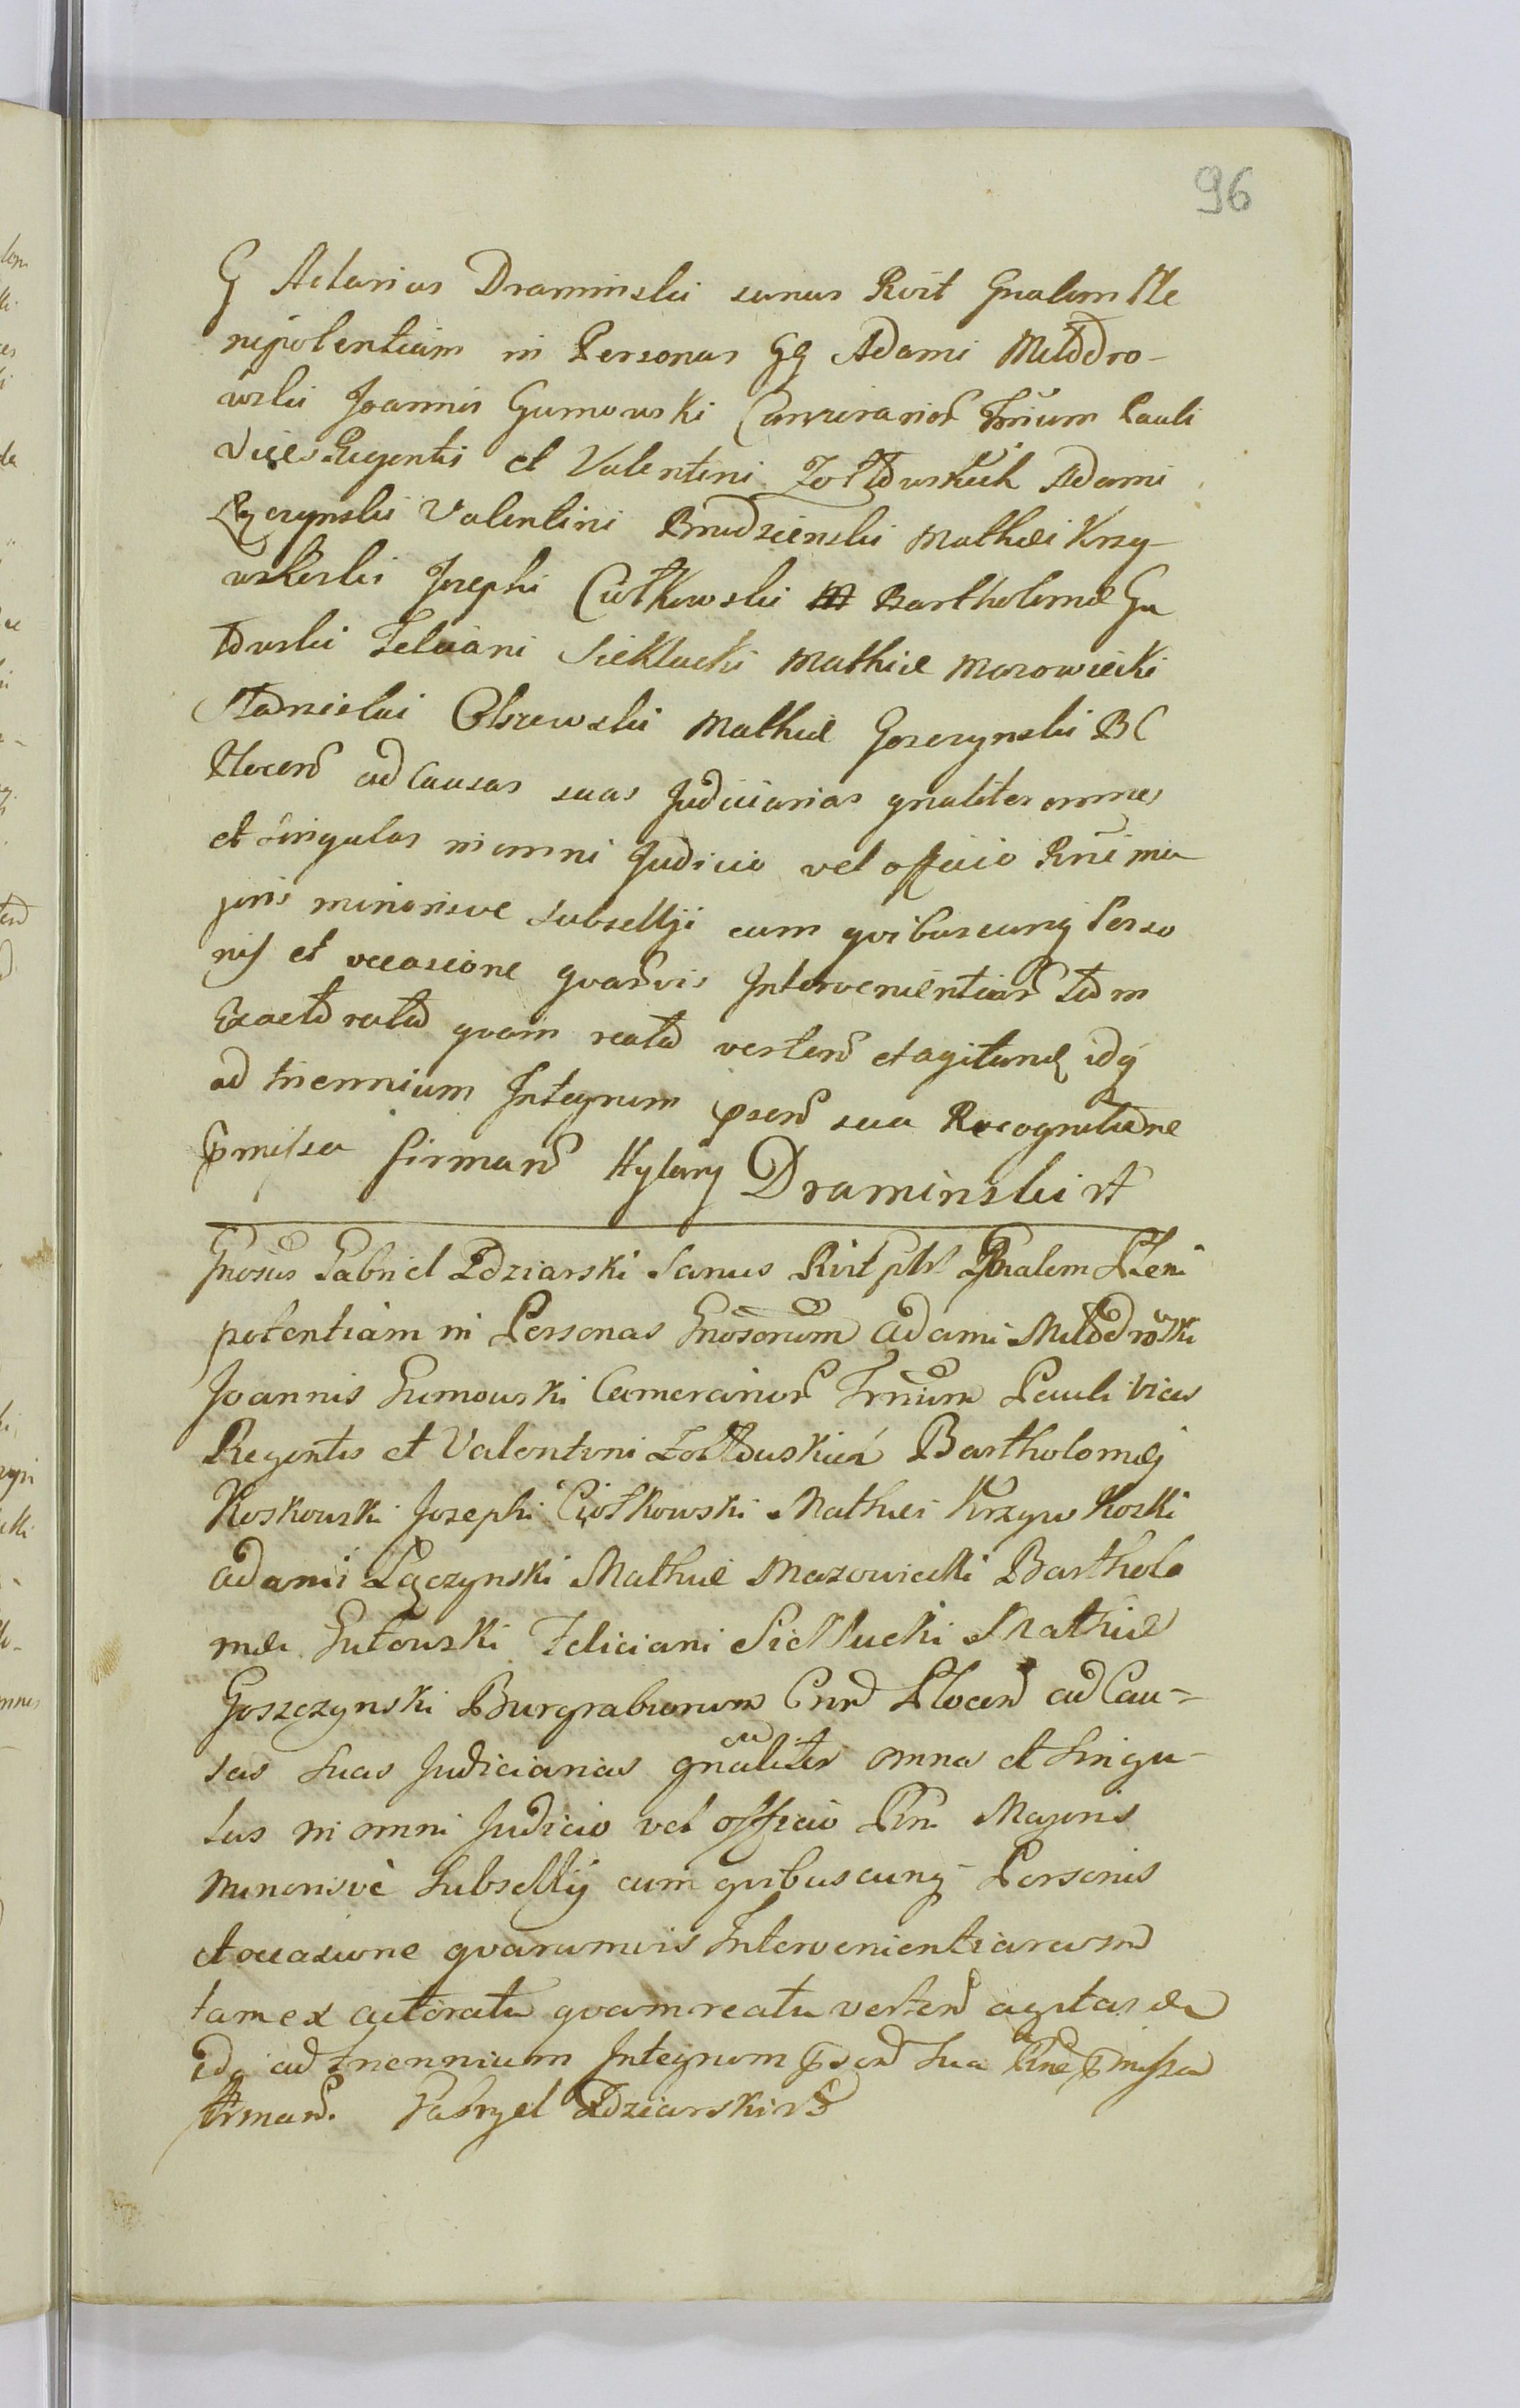 96
G Actarius Draminski sanus Rcit Gnalem Ple
nipotentiam in Personas GG Adami
wski Joannis Gumowski Trnium Pauli
Vices Regentis et Valentini Adami
Łączynski Valentini Brudzienski Mathei Krzy-
Josephi Ciołkowski Bartholomæ Gu
towski Feliciani Sieklucki Mathiæ Mazowiecki
Stanislai Olszewski Mathiæ Goszczynski BC
Plocen ad Causas suas Judiciarias gnaliter omnes
et singulas in omni Judicio vel officio Rni ma
joris minorisve Subsellji cum qvibuscunq Perso
nis et occasione qvarvis Intervenientiar tam
qvam reatu verten et agitand idq
ad triennium Integrum pser sua Recognitione
pmissa firman Hylary Draminski
Gnosus Gabriel Zdziarski Sanus Rcit Gnalem Pleni
potentiam in Personas Gnosorum Adami
Joannis Gumowski Camerarior Trnium Pauli Vices
Regentis et Valentini Bartholomæj
Koskowski Josephi Ciołkowski Mathæi Krzywkoski
Adami Łączynski Mathiæ Mazowiecki Bartholo
mæi Gutowski Feliciani Sieklucki Mathiæ
Goszczynski Burgrabiorum Plocen ad Cau-
sas suas Judiciarias gnaliter omnes et singu-
las in omni Judicio vel officio Rni Majoris
minorisve Subsellij cum qvibuscunq Personis
et occasione qvarumvis Intervenientiarum
tam ex actoratu qvam reatu verten agitan
idq ad triennium Integrum psen sua Rne pmissa
firman. Gabryel Zdziarski